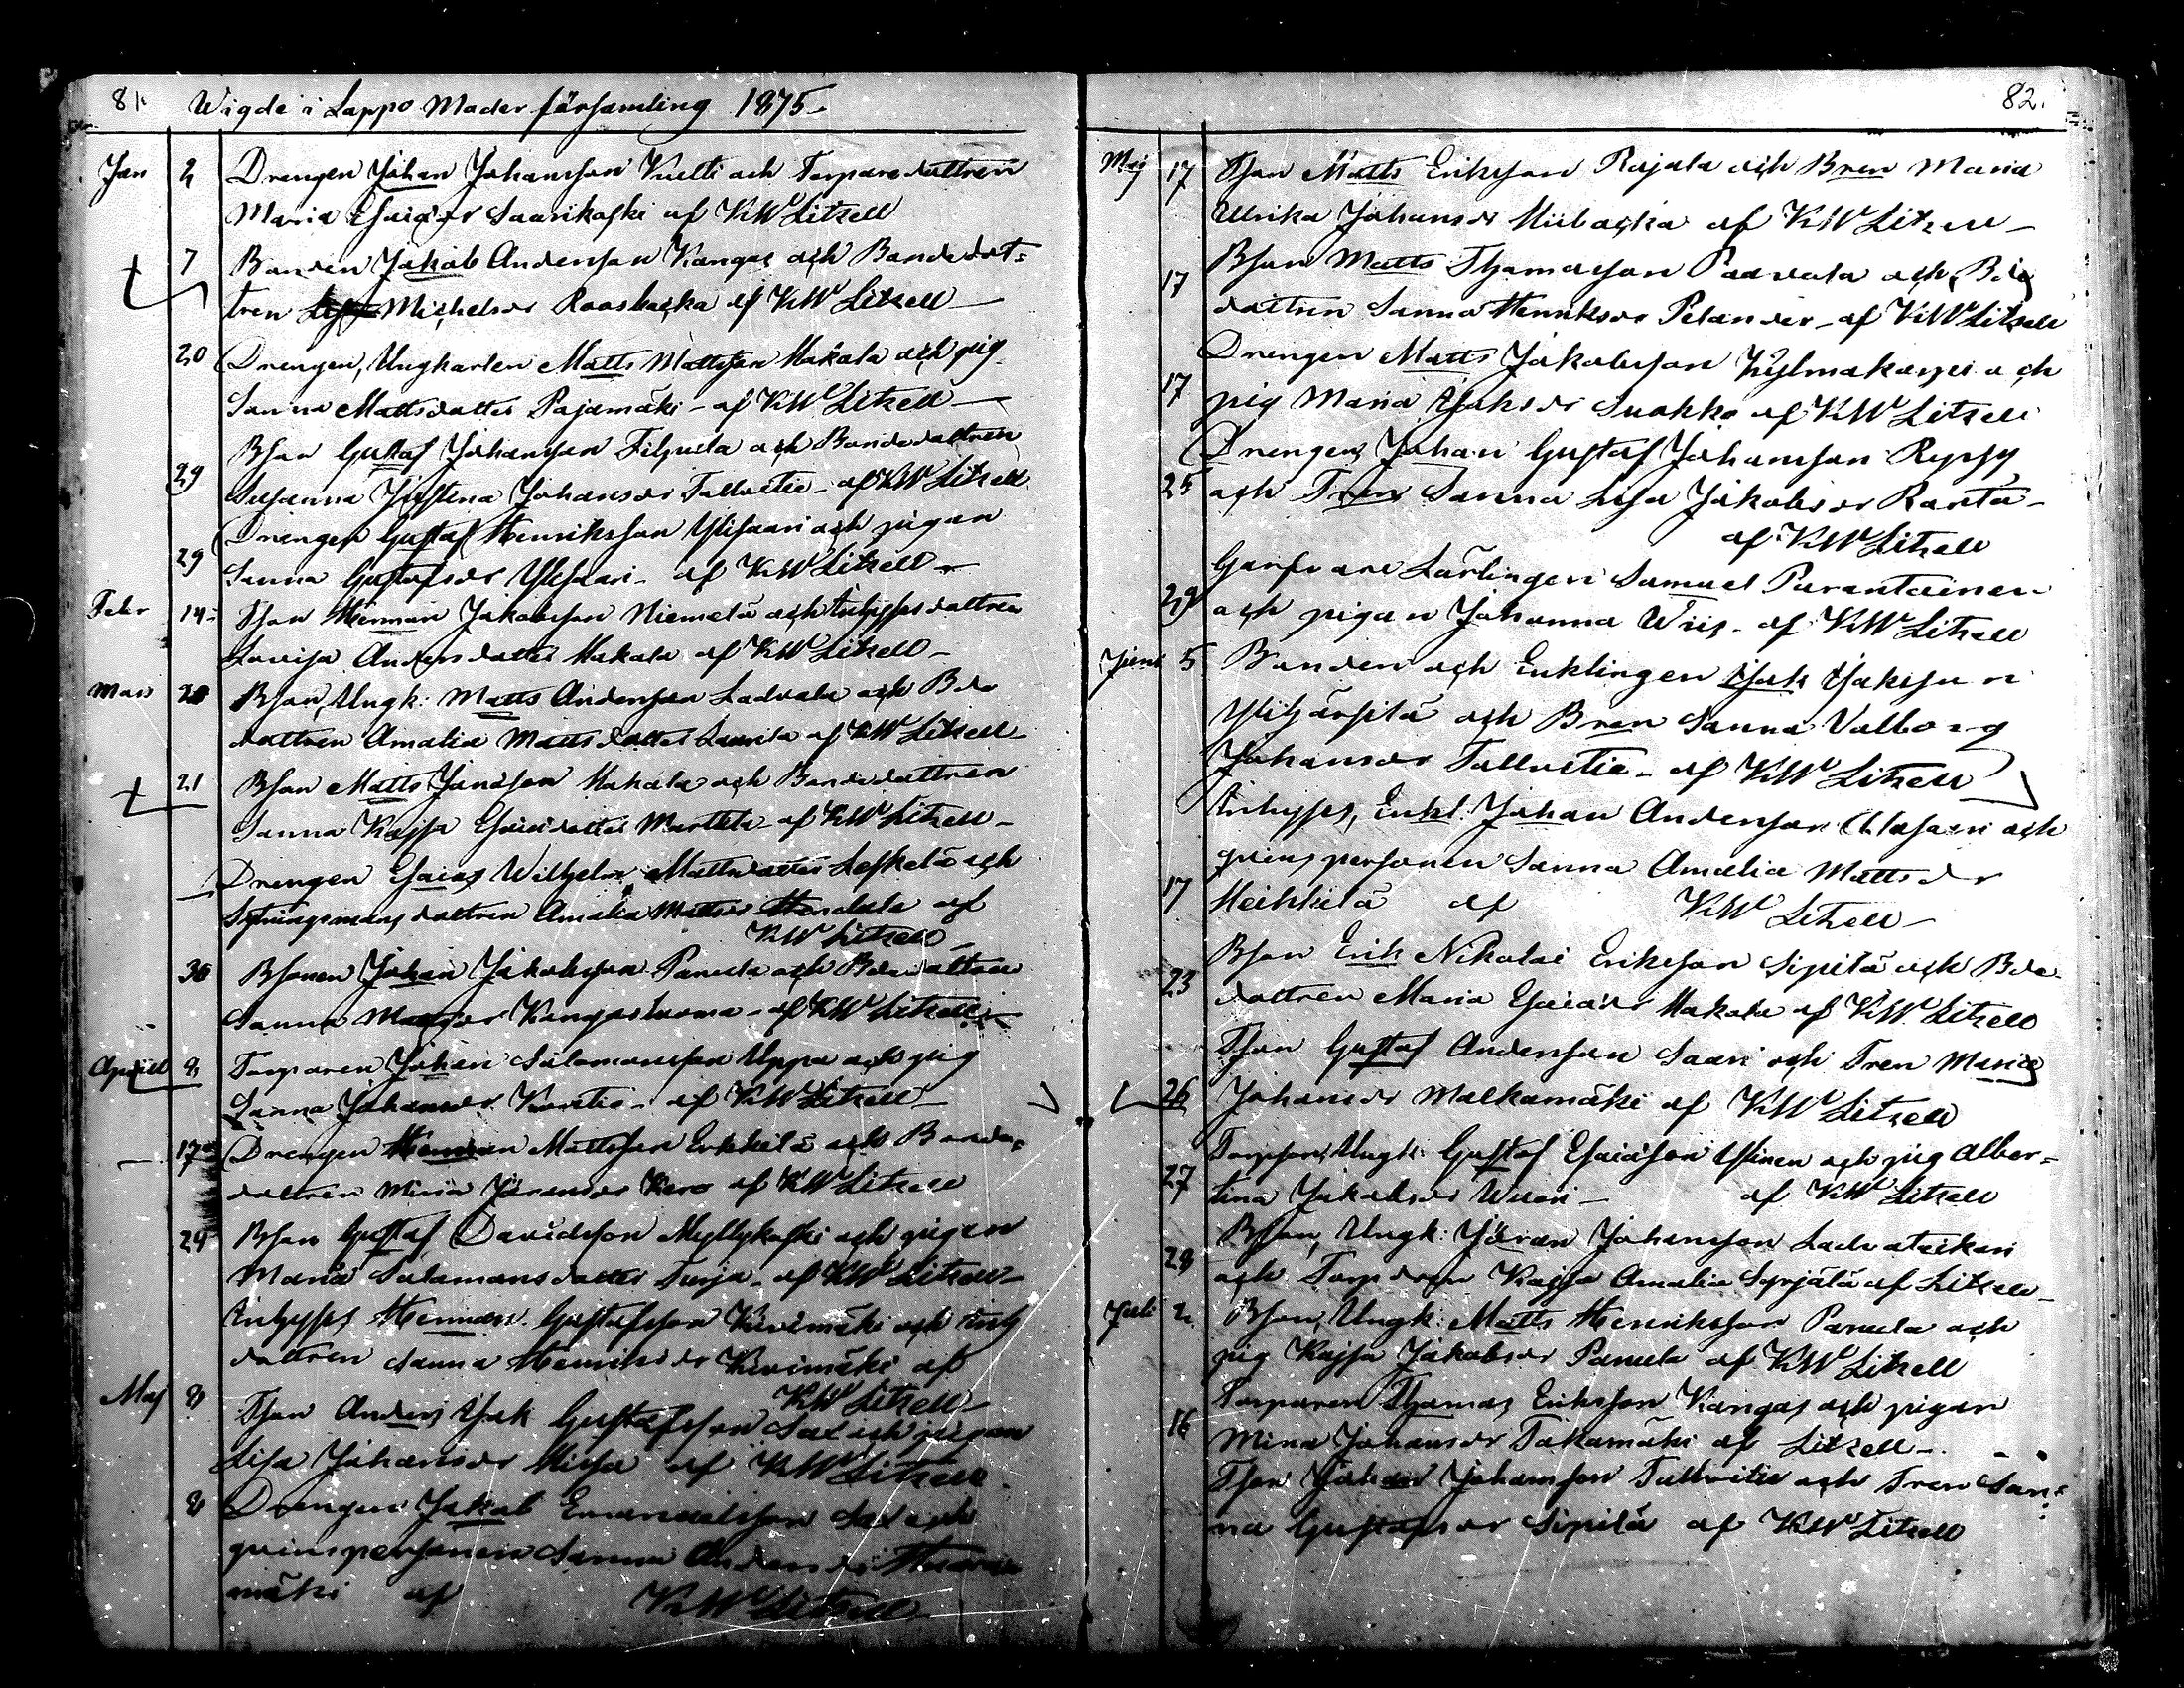 81.
Wigde i Lappo Moder församling 1875
Jan 2 Drengen Johan Johansson Kuelti och Torparedottren
Maria Esaiædr Saarikoski af KWLitzell
7 Bonden Jakob Andersson Kangas och Bondedot=
tren Michelsdr Raasbacka af KW Litzell
20 Drengen, Ungkarlen Matts Mattsson Hakala och pig
Sanna Mattsdotter Pajamäki - af KW Litzell
29 Bson Gustaf Johansson Filpula och Bondedottren
Susanna Justina Johansdr Tallvitie - af KW Litzell
29 Drengen Gustaf Henriksson Ylisaari och pigan
Sanna Gustafsdr Ylisaari - af KW Litzell
Febr 14 Tson Herman Jakobsson Niemelä och Inhysesdottren
Lovisa Andersdotter Hakala af KW Litzell
Mars Bson, Ungk: Matts Andersson Ladvala och Bde
dottren Amalia Mattsdotter Laurila af KW Litzell
21 Bson Matts Hakala och Bondedottren
Sanna Kajsa Esaiædotter Marttila af KW Litzell
Drengen Esaias Wilhelm Mattsdotter Leskelä och
Sytningsmansdottren Amalia Mattsdr af
KW Litzell
30 Bsonen Johan Jakobsson Panula och Bdedottren
Sanna Kangasluoma - af KW Litzell
Aprill 8 Torparen Johan Salomonsson Uppa och pig
Sanna Johansdr af KW Litzell
17 Drengen Herman Mattsson Erkkilä och Bonde=
dottren Maria Jöransdr Kero af KW Litzell
29 Bson Gustaf Davidsson Myllykoski och pigan
Maria Salomonsdotter Turja - af KW Litzell
Inhyses Herman Gustafsson Kivimäki och Inh
dottren Sanna Henriksdr Kivimäki af
KW Litzell
Maj 8 Tson Anders Isak Gustafsson Sax och pigan
Lisa Johansdr af KW Litzell
8 Drengen Jakob Emanuelsson Sax och
qvinspersonen Sanna Andersdr
mäki af KW Litzell
82.
Maj 17 Tson Matts Eriksson Rajala och Bren Maria
Ulrika Johansdr Miibacka af KW Litzell
17 Bson Matts Thomasson Paavola och Bde
dottren Sanna Henriksdr Pelander - af KW Litzell
17 Drengen Matts Jakobsson Kylmakarpi och
pig Maria Isaksdr Suokko af KW Litzell
25 Drengen Johan Gustaf Johansson Rypsy
och Tren Sanna Lisa Jakobsdr Ranta -
af KW Litzell
29 Garfvare Lärlingen Samuel Parantainen
och pigan Johanna Wiig - af KW Litzell
Juni 5 Bonden och Enklingen Isak Isaksson
Ylihärsilä och Bren Sanna Valborg
Johansdr Tallvitie - af KW Litzell
17 Inhyses, Enkl. Johan Andersson Alasaari och
qvinspersonen Sanna Amalia Mattsdr
Heikkilä af KW Litzell
23 Bson Erik Nikolai Eriksson Sipilä och Bde
dottren Maria Esaiædr Hakala af KW. Litzell
26 Tson Gustaf Andersson Saari och Tren Maria
Johansdr Malkamäki af KW Litzell
27 Torpson, Ungk: Gustaf Esaiæson Ylinen och pig Alber=
tina Jakobsdr Wuori - af KW Litzell
28 Bson, Ungk: Jöran Johansson Ladvataikari
och Kajsa Amalia Syrjälä af Litzell
Juli 2 Bson, Ungk: Matts Henriksson Panula och
pig Kajsa Jakobsdr Panula af KW Litzell
16 Torparen Thomas Eriksson Kangas och pigan
Mina Johansdr Takamäki af Litzell -
Tson Johan Johansson Tallvitie och Tren San=
na Gustafsdr Sipilä af KW Litzell